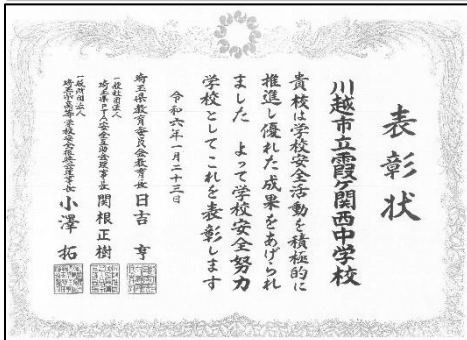 表彰状
川越市立霞ケ関西中学校
貴校は学校安全活動を積極的に
推進し優れた成果をあげられ
ました よって学校安全努力
学校としてこれを表彰します
令和六年一月二十三日
埼玉県教育委員会教育長 日吉 亨
一般社団法人
埼玉県PTA安全互助会理事長 関根正樹
一般財団法人
埼玉県高等学校安全振興会理事長 小澤 拓